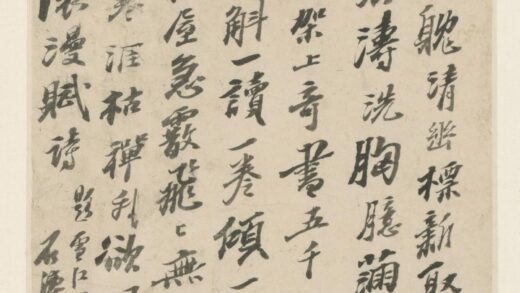 清幽標新取
濤洗胸臆
架上奇書五千
斛一讀一卷傾一
急霰飛〻無
涯枯禪我欲
漫賦詩
題雪江
石濤